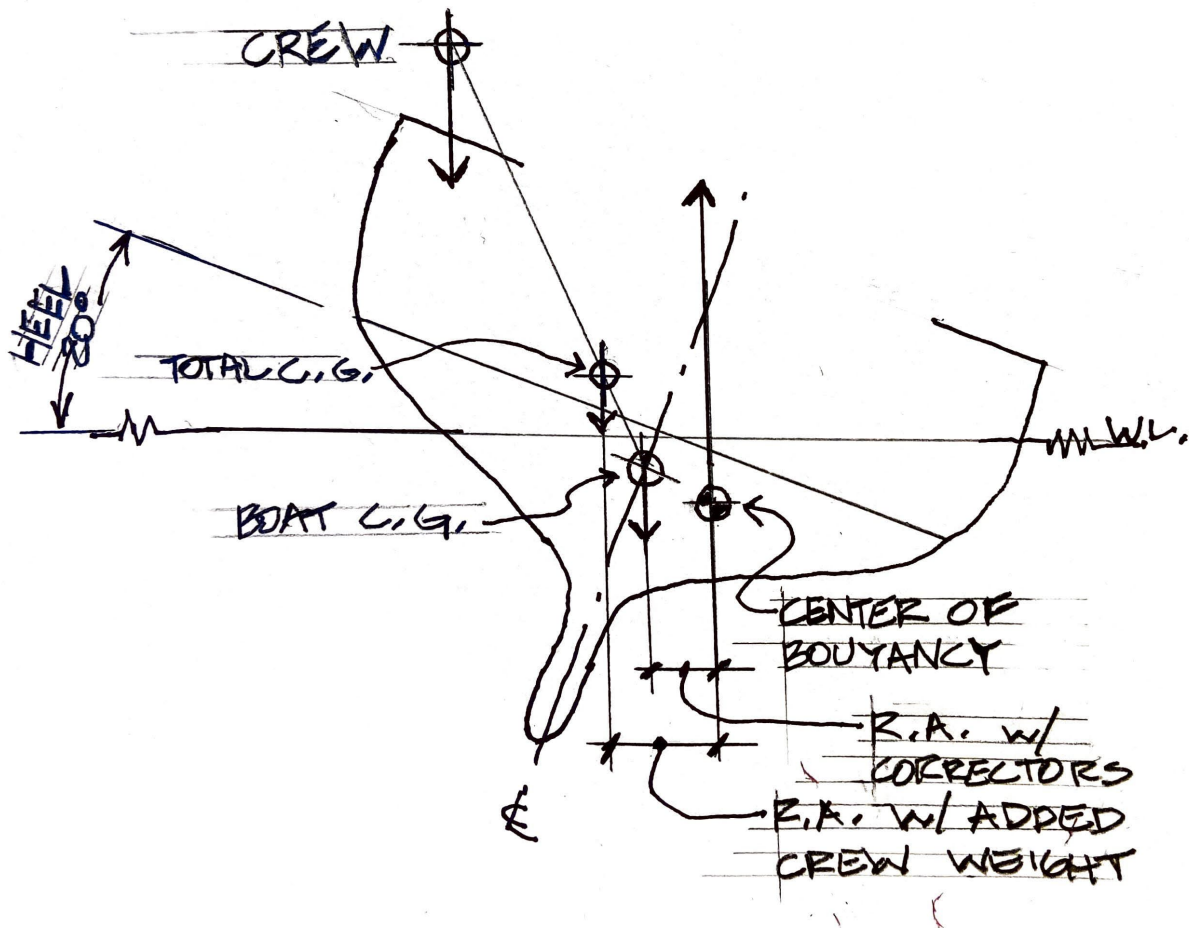 CREW
HEEL
20°
TOTAL C.G.
W.L.
BOAT C.G.
CENTER OF
BOUYANCY
R.A. w/
CORRECTORS
R.A. W/ ADDED
CREW WEIGHT
℄